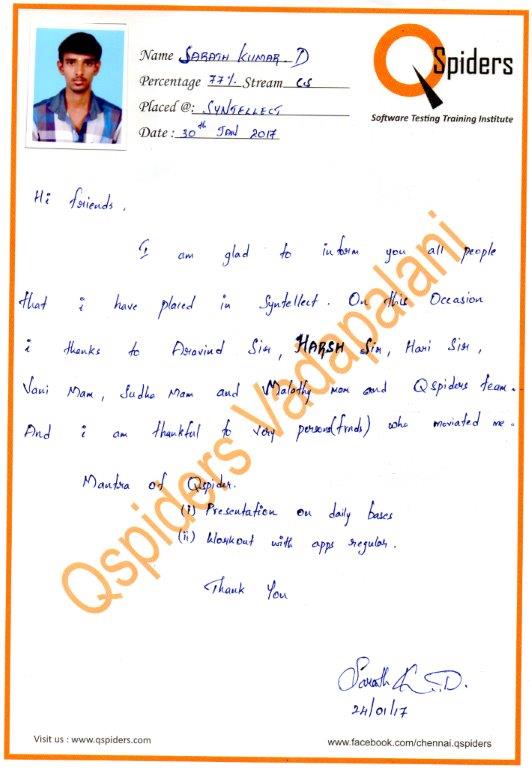 Name SARATH KUMAR. D
Percentage 77% Stream CS
Placed @: SYNTELLECT
Date : 30th JAN 2017
QSpiders
Software Testing Training Institute
Hi friends,
I am glad to inform you all people
that i have placed in Syntellect. On this Occasion
i thanks to Aravind Sir, HARSH Sir, Hari Sir,
Vani Mam, Sudha Mam and Malathy mam and Qspiders team.
And i am thankful to very person(frnds) who moviated me.
Mantra of Qspider.
(i) Presentation on daily bases
(ii) Workout with apps regular.
Thank You
Qspiders Vadapalani
Sarath K. D.
24/01/17
Visit us : www.qspiders.com
www.facebook.com/chennai.qspiders